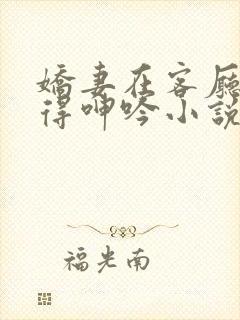 嬌妻在客厅
得呻吟小說
福光南